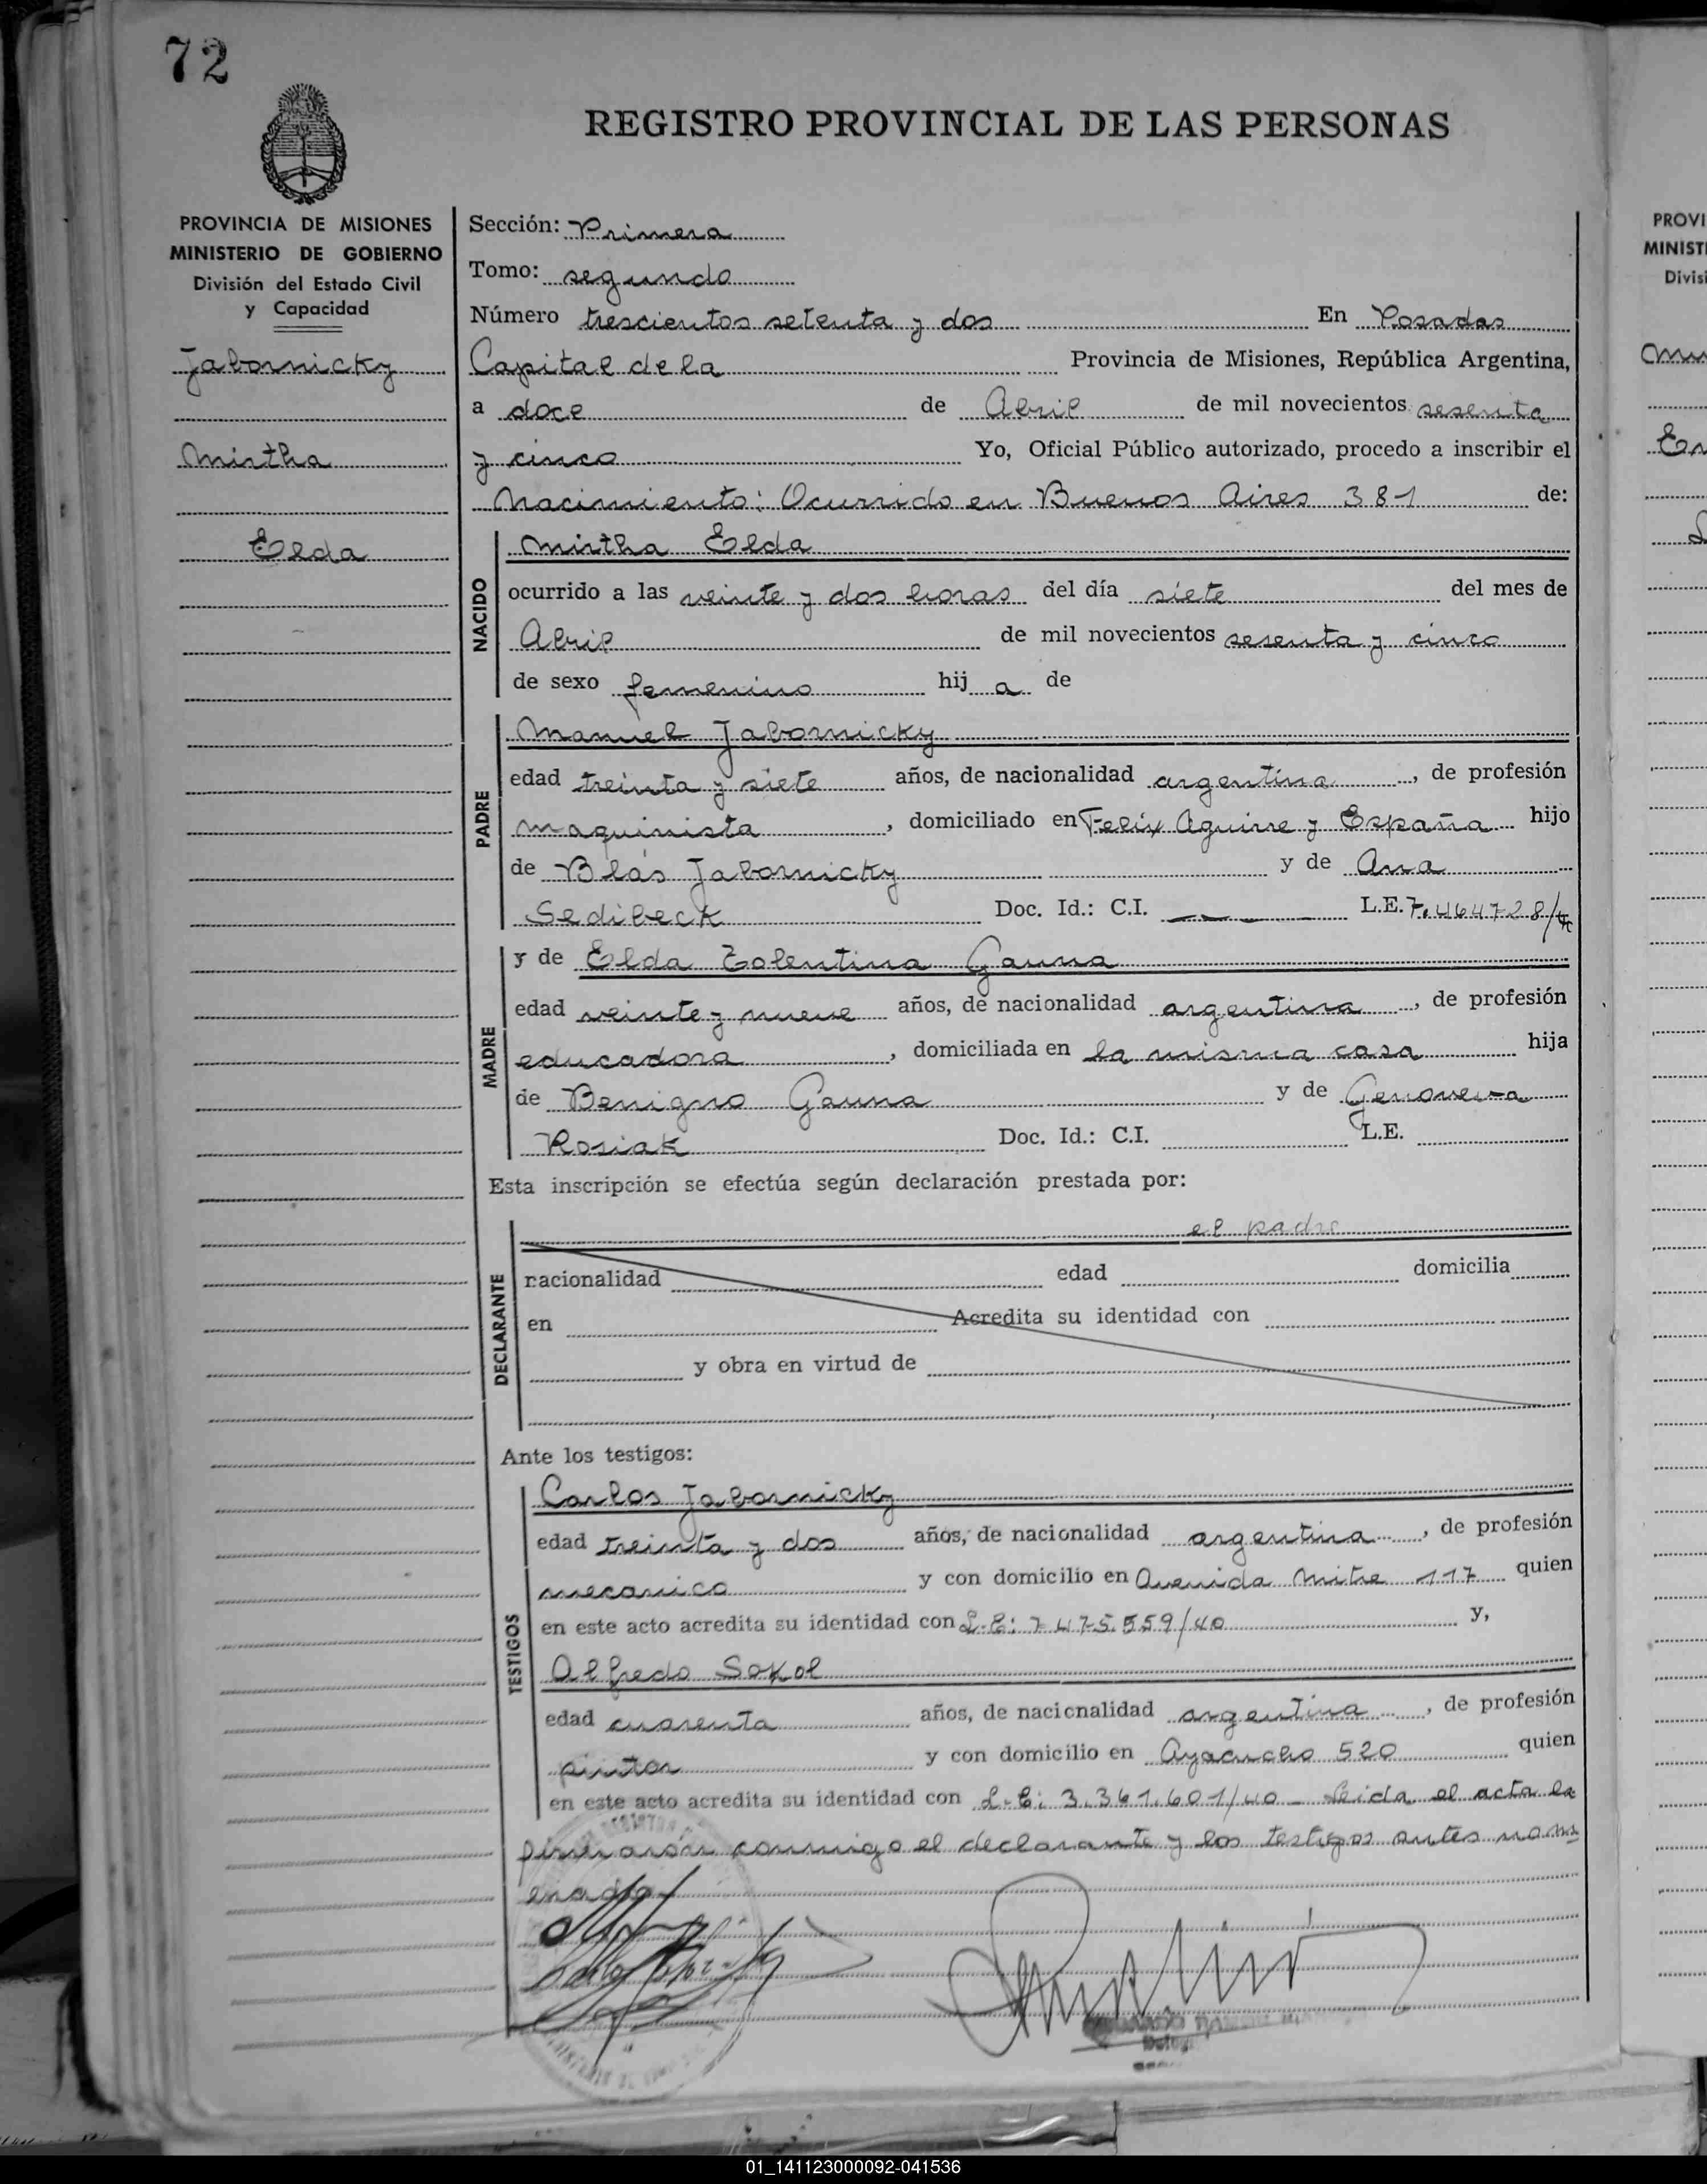 72
REGISTRO PROVINCIAL DE LAS PERSONAS
PROVINCIA DE MISIONES
MINISTERIO DE GOBIERNO
División del Estado Civil
y Capacidad
Jabornicky
Mirtha
Elda
Sección: Primera
Tomo: segundo
Número trescientos setenta y dos En Posadas
Capital de la Provincia de Misiones, República Argentina,
a doce de Abril de mil novecientos sesenta
y cinco Yo, Oficial Público autorizado, procedo a inscribir el
Nacimiento: Ocurrido en Buenos Aires 381 de:
NACIDO
Mirtha Elda
ocurrido a las veinte y dos horas del día siete del mes de
Abril de mil novecientos sesenta y cinco
de sexo femenino hij a de
PADRE
Manuel Jabornicky
edad treinta y siete años, de nacionalidad argentina, de profesión
maquinista, domiciliado en Felix Aguirre y España hijo
de Blás Jabornicky y de Ana
Sedibeck Doc. Id.: C.I. — L.E. 7.464728/
MADRE
y de Elda Tolentina Gauna
edad veinte y nueve años, de nacionalidad argentina, de profesión
educadora, domiciliada en la misma casa hija
de Benigno Gauna y de Genoveva
Rosiak Doc. Id.: C.I. L.E.
Esta inscripción se efectúa según declaración prestada por:
DECLARANTE
el padre
nacionalidad edad domicilia
en Acredita su identidad con
y obra en virtud de
Ante los testigos:
TESTIGOS
Carlos Jabornicky
edad treinta y dos años, de nacionalidad argentina, de profesión
mecanico y con domicilio en Avenida Mitre 117 quien
en este acto acredita su identidad con L.E: 7.475.559/40 y,
Alfredo Sokol
edad cuarenta años, de nacionalidad argentina, de profesión
pintor y con domicilio en Ayacucho 520 quien
en este acto acredita su identidad con L.E: 3.361.601/40 - Leida el acta la
firmaron conmigo el declarante y los testigos antes nom
PROVI
MINIST
Divis
01_141123000092-041536